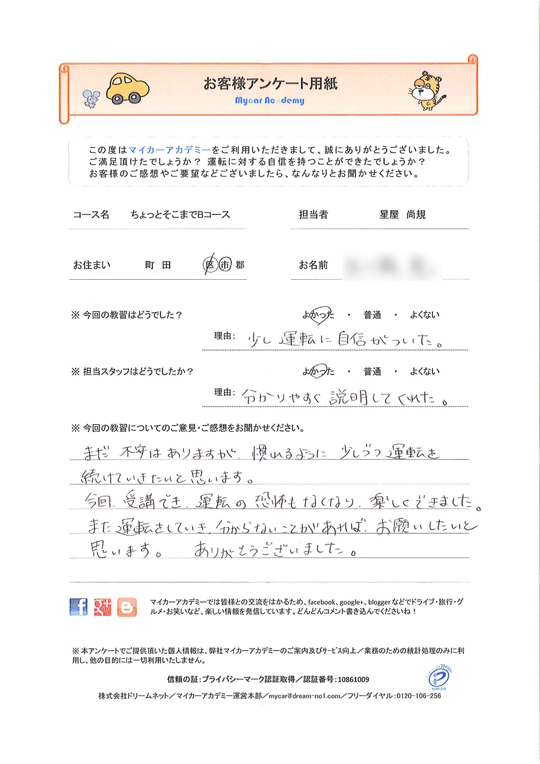 お客様アンケート用紙
Mycar Academy
この度はマイカーアカデミーをご利用いただきまして、誠にありがとうございました。
ご満足頂けたでしょうか? 運転に対する自信を持つことができたでしょうか?
お客様のご感想やご要望などございましたら、なんなりとお聞かせください。
コース名 ちょっとそこまでBコース 担当者 星屋 尚規
お住まい 町 田 区 市 郡 お名前
※ 今回の教習はどうでした? よかった ・ 普通 ・ よくない
理由: 少し運転に自信がついた。
※ 担当スタッフはどうでしたか? よかった ・ 普通 ・ よくない
理由: 分かりやすく説明してくれた。
※ 今回の教習についてのご意見・ご感想をお聞かせください。
まだ不安はありますが、慣れるように少しづつ運転を
続けていきたいと思います。
今回、受講でき、運転の恐怖もなくなり、楽しくできました。
また運転をしていき、分からないことがあれば、お願いしたいと
思います。 ありがとうございました。
マイカーアカデミーでは皆様との交流をはかるため、facebook、google+、bloggerなどでドライブ・旅行・グ
ルメ・お笑いなど、楽しい情報を発信しています。どんどんコメント書き込んでくださいね!
※ 本アンケートでご提供頂いた個人情報は、弊社マイカーアカデミーのご案内及びサービス向上/業務のための統計処理のみに利
用し、他の目的には一切利用いたしません。
信頼の証:プライバシーマーク認証取得/認証番号:10861009
株式会社ドリームネット/マイカーアカデミー運営本部/mycar@dream-no1.com/フリーダイヤル:0120-106-256